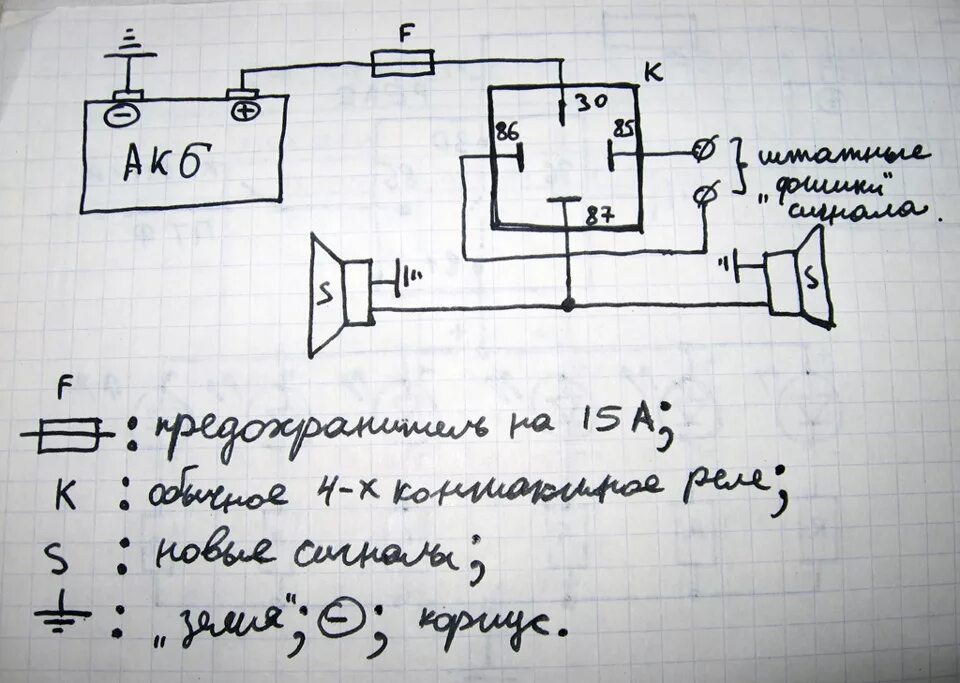 F
K
30
86
85
АКБ
штатные
„фишки"
сигнала.
87
S
S
F
: предохранитель на 15А;
K : обычное 4-х контактное реле;
S : новые сигналы;
: „земля"; ⊖; корпус.